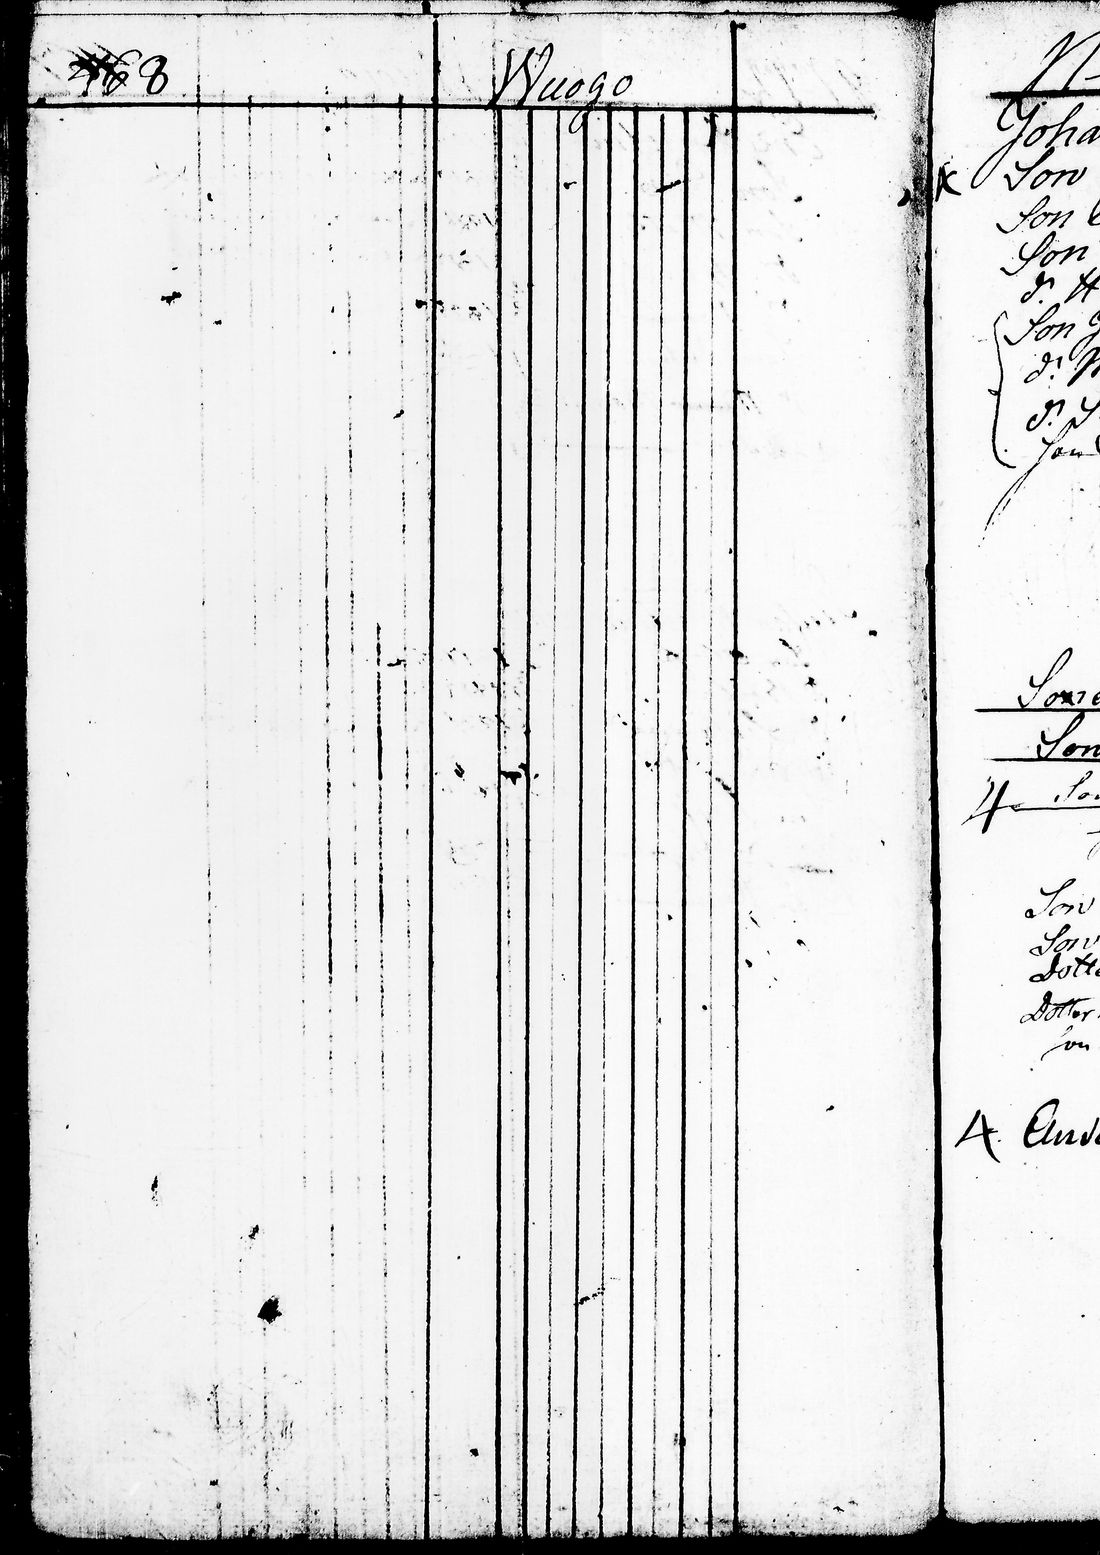 8
Wuogo
N
Joha
Son
Son
Son
d:
Son
d:
d:
Son
Sone
Son
4 Son
Son
Son
Dotte
Dotter
son
4 And